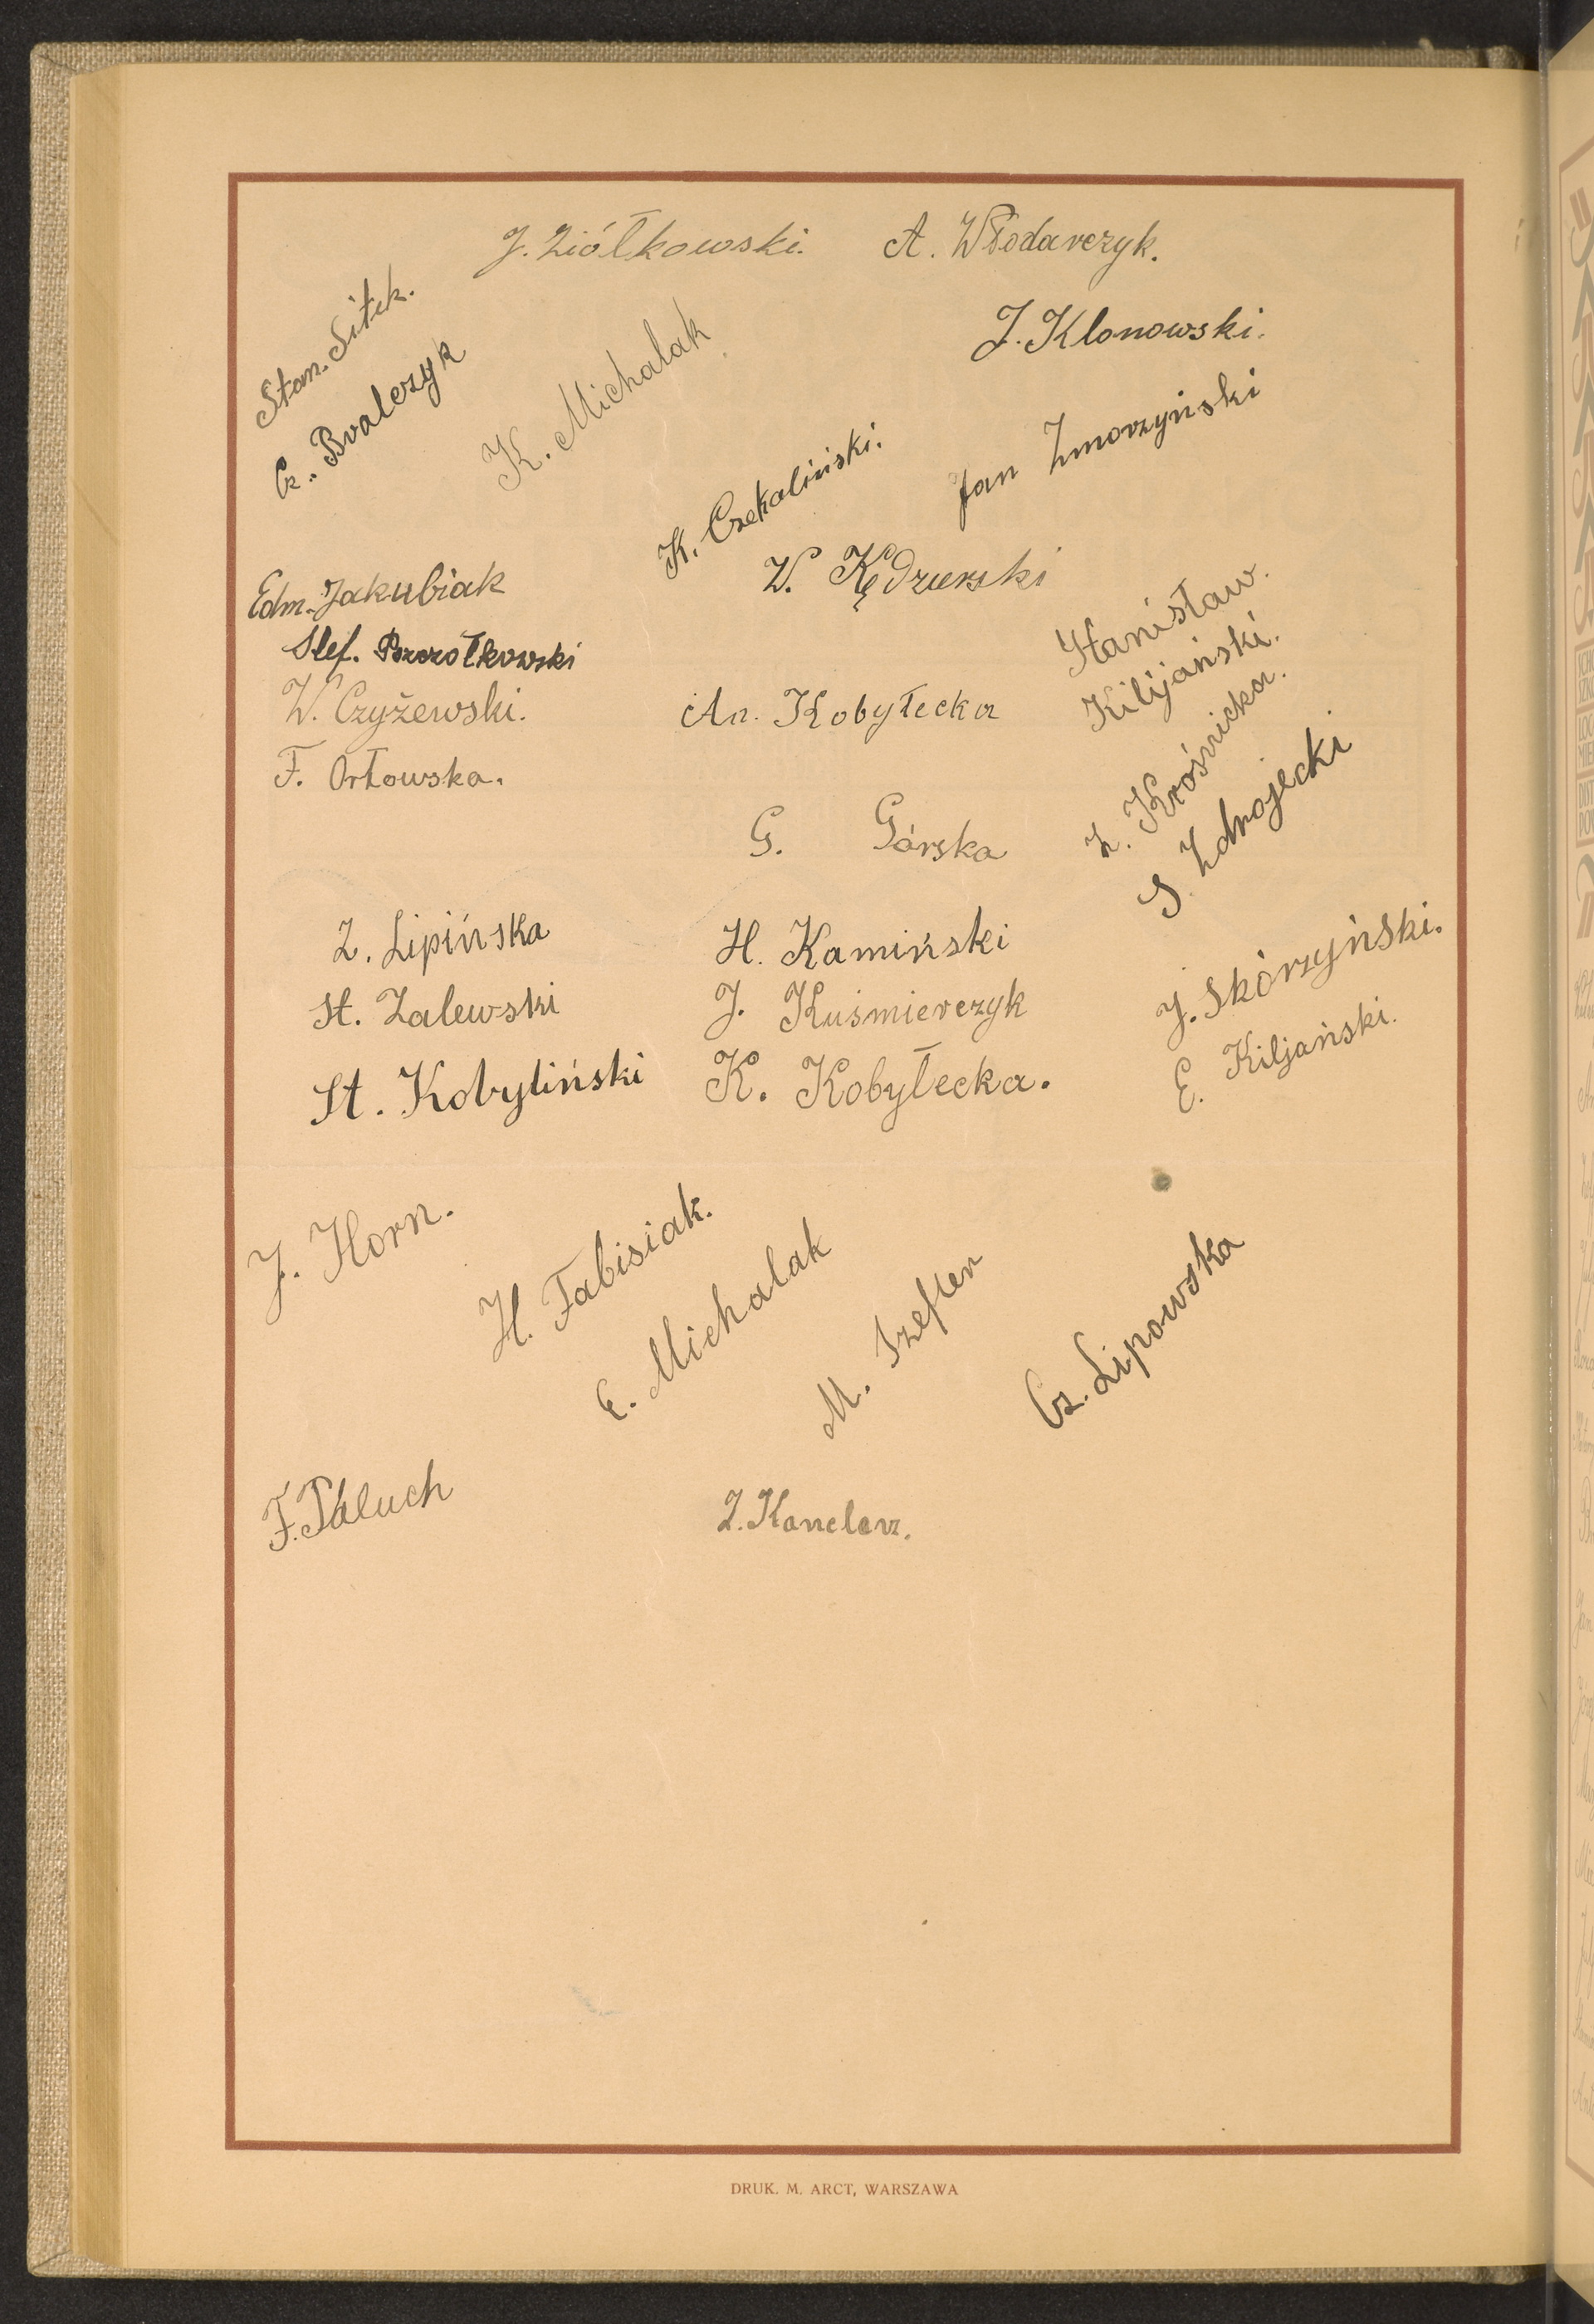 J. Ziółkowski.
A. Włodarczyk.
Stan. Sitek.
Cz. Bralczyk
K. Michalak
J. Klonowski.
K. Czekaliński.
Jan Zmorzyński
Edm. Jakubiak
W. Kędzierski
Stef. Pszczółkowski
Stanisław
Kilijański.
W. Czyżewski.
An. Kobyłecka
F. Orłowska.
Z. Krośnicka.
S. Zdrojecki
G. Górska
Z. Lipińska
H. Kamiński
J. Skórzyński.
St. Zalewski
J. Kuśmierczyk
E. Kiljański.
St. Kobyliński
K. Kobyłecka.
J. Horn.
H. Fabisiak.
E. Michalak
M. Szefler
Cz. Lipowska
F. Paluch
Z. Kanclerz.
DRUK. M. ARCT, WARSZAWA